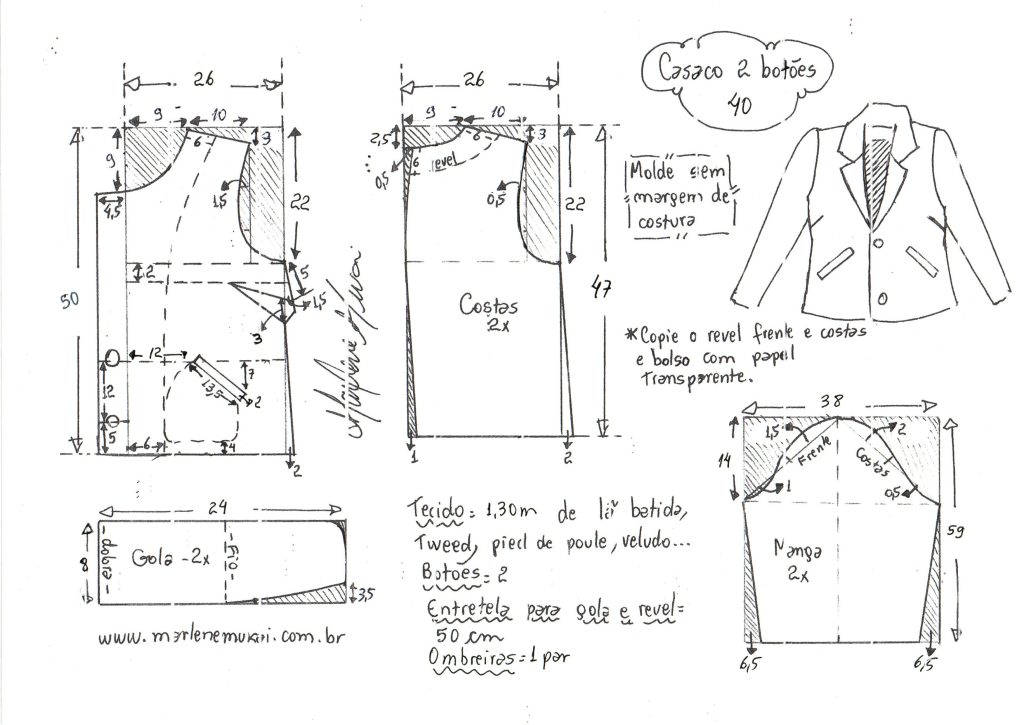 Casaco 2 botões
40
26
9
10
3
6
9
4,5
1,5
22
2
5
1,5
3
50
12
7
13,5
2
12
5
6
4
2
26
9
10
3
2,5
6
6
revel
0,5
0,5
22
47
Costas
2x
1
2
Molde sem
margem de
costura
*Copie o revel frente e costas
e bolso com papel
transparente.
38
1,5
2
14
Frente
Costas
1
0,5
59
Manga
2x
6,5
6,5
24
8
-dobra-
Gola - 2x
-Fio-
3,5
www.marlenemukai.com.br
Tecido = 1,30m de lã batida,
Tweed, pied de poule, veludo...
Botões = 2
Entretela para gola e revel =
50 cm
Ombreiras = 1 par